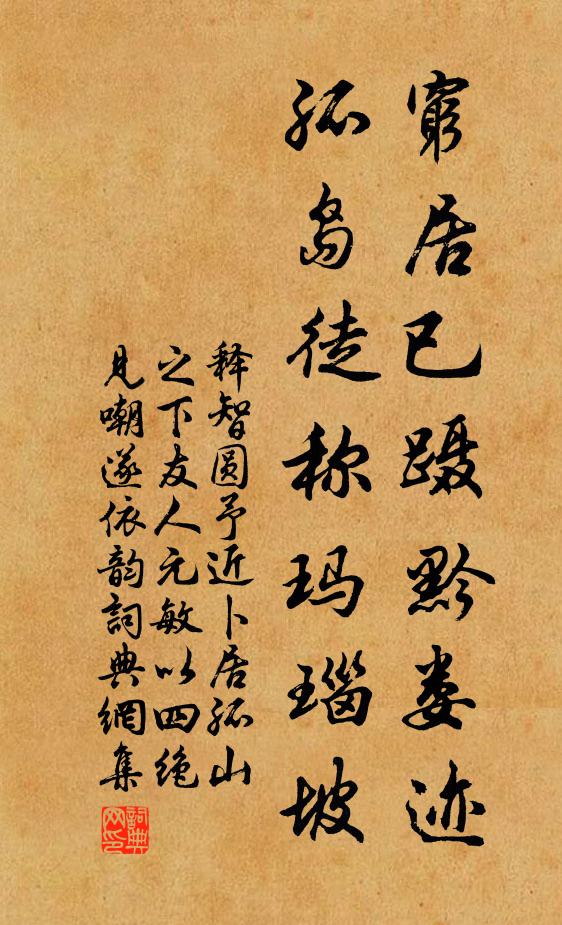 窮居已蹑黔娄迹
孤岛徒称玛瑙坡
释智圆予近卜居孤山
之下友人元敏以四绝
见嘲遂依韵詞典網集
詞典
网印